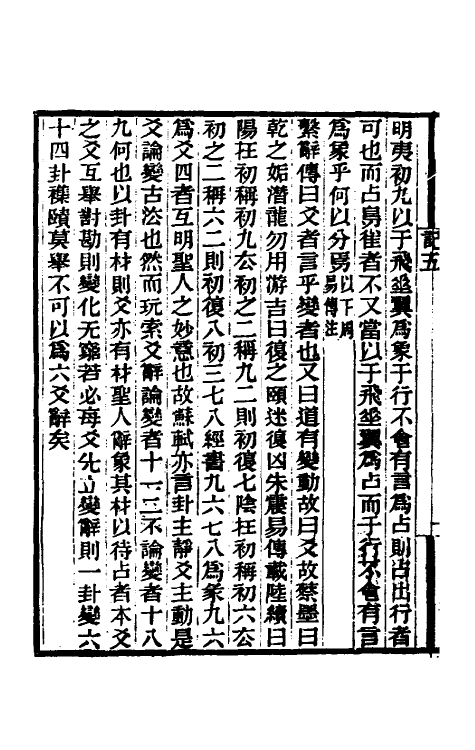 明夷初九以于飛垂翼爲象于行不食有言爲占則占出行者
可也而占鳥雀者不又當以于飛垂翼爲占而于行不食有言
爲象乎何以分 以下周易傳注
繫辭傳曰爻者言乎變者也又曰道有變動故曰爻故蔡墨曰
乾之姤潛龍勿用游吉曰復之頤迷復凶朱震易傳載陸績曰
陽在初稱初九厺初之二稱九二則初復七陰在初稱初六厺
初之二稱六二則初復八初三七八經書九六七八爲象九六
爲爻四者互明聖人之妙意也故蘇軾亦言卦主靜爻主動是
爻論變古法也然而玩索爻辭論變者十一三不論變者十八
九何也以卦有材則爻亦有材聖人辭象其材以待占者本爻
之爻互舉對勘則變化无窮若必每爻先立變辭則一卦變六
十四卦襍賾莫舉不可以爲六爻辭矣
五